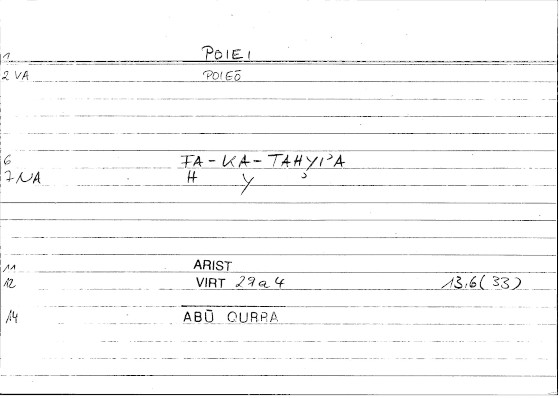 1 POIEI
2 VA POIEŌ
6 FA-KA-TAHYI'A
7 NA H Y '
11 ARIST
12 VIRT 29a4 13,6(33)
14 ABŪ QURRA